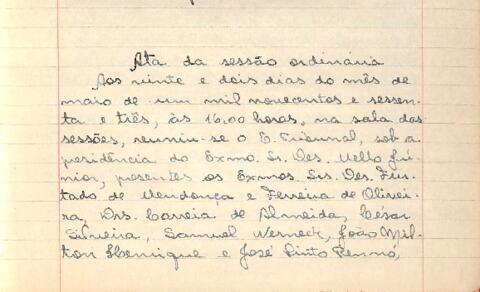 Ata da sessão ordinária
Aos vinte e dois dias do mês de
maio de um mil novecentos e sessen-
ta e três, às 16,00 horas, na sala das
sessões, reuniu-se o E. Tribunal, sob a
presidência do Exmo. Sr. Des. Mello Jú-
nior, presentes os Exmos. Srs. Des. Fur-
tado de Mendonça e Ferreira de Olivei-
ra, Drs. Correia de Almeida, César
Silveira, Samuel Werneck, João Mil-
ton Henrique e José Pinto Rennó,